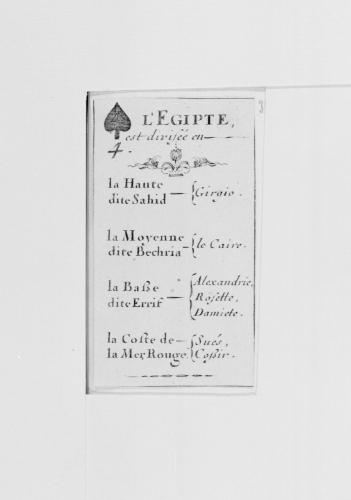 L'EGIPTE,
est divisée en
4.
la Haute
dite Sahid
Girgio.
la Moyenne
dite Bechria
le Caire.
la Basse
dite Errif
Alexandrie,
Rosette,
Damiete.
la Coste de
la Mer Rouge
Sués,
Cossir.